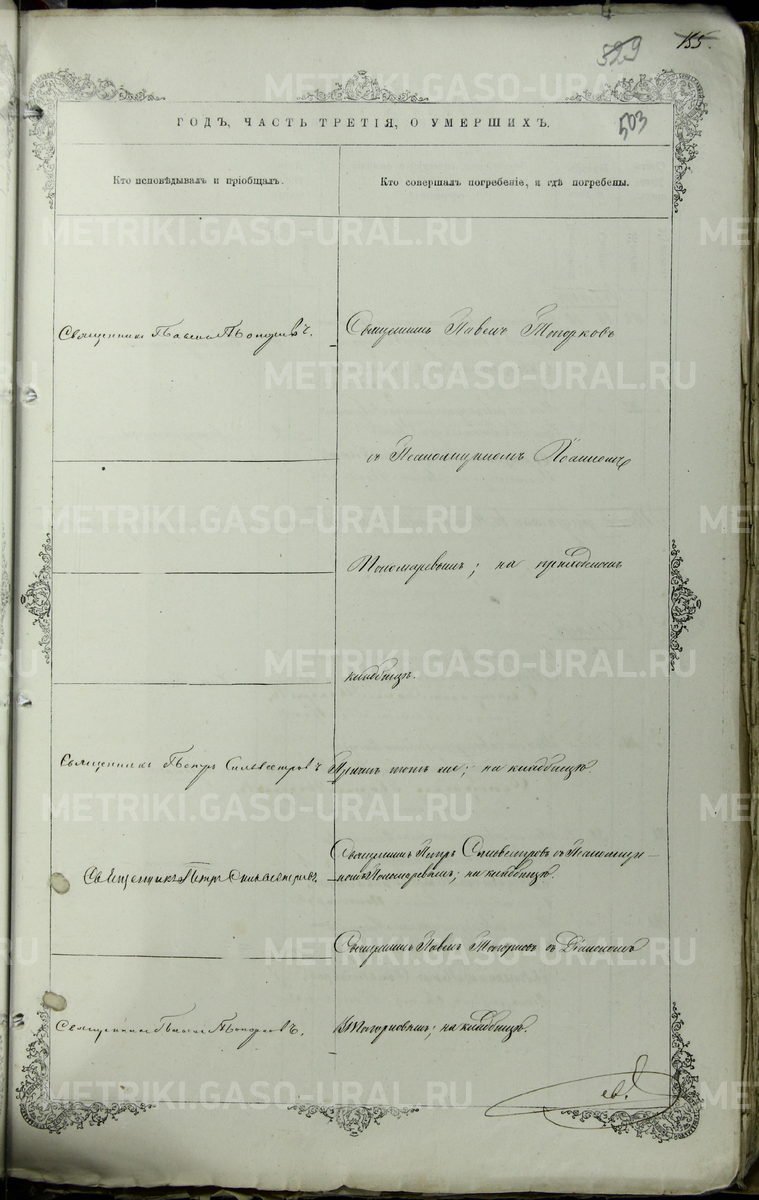 155.
529
503
ГОДЪ, ЧАСТЬ ТРЕТІЯ, О УМЕРШИХЪ.
Кто исповѣдывалъ и пріобщалъ.
Кто совершалъ погребеніе, и гдѣ погребены.
Священникъ Павелъ
Священникъ Павелъ Топорковъ
съ Псаломщикомъ Іоанномъ
Пономаревымъ; на приходскомъ
кладбищѣ.
Священникъ Петръ Сильвестровъ
Причтъ тотъ же; на кладбищѣ.
Священникъ Петръ Сильвестровъ съ Псаломщи-
комъ Пономаревымъ; на кладбищѣ.
Священникъ Петръ Сильвестровъ.
Священникъ Павелъ Топорковъ съ Діакономъ
Священникъ Павелъ
на кладбищѣ.
METRIKI.GASO-URAL.RU